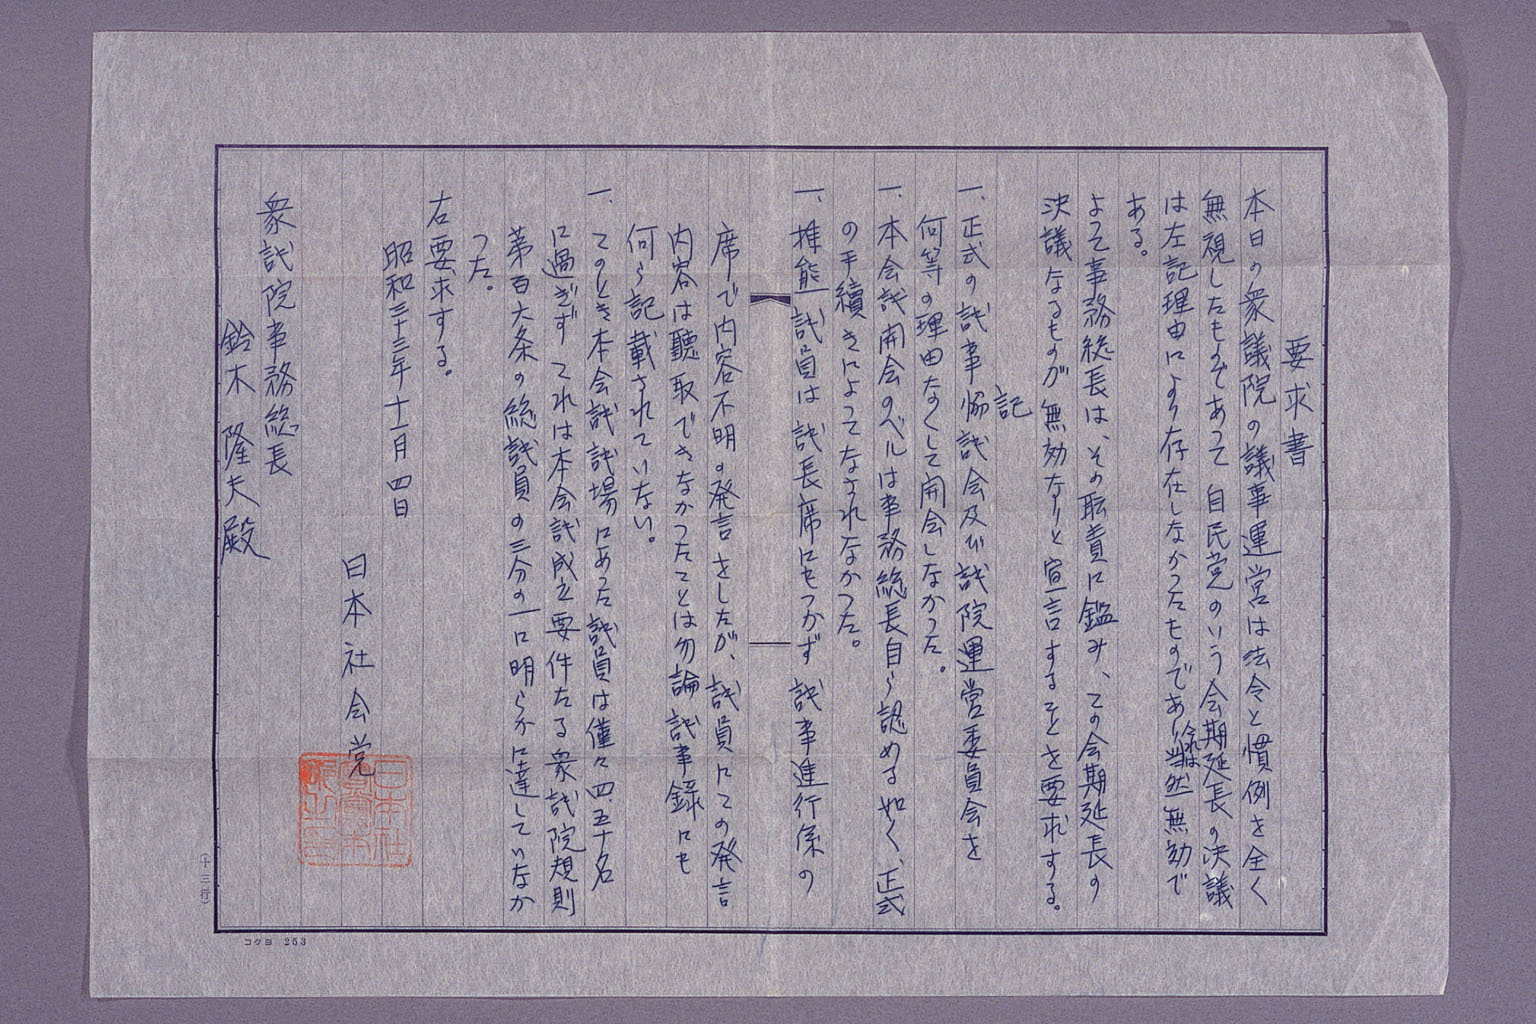 要求書
本日の衆議院の議事運営は法令と慣例を全く
無視したものであつて自民党のいう会期延長の決議
は左記理由により存在しなかつたものであり当然無効で
ある。
よつて事務総長は、その職責に鑑み、この会期延長の
決議なるものが無効なりと宣言することを要求する。
記
一、正式の議事協議会及び議院運営委員会を
何等の理由なくして開会しなかつた。
一、本会議開会のベルは事務総長自ら認める如く、正式
の手續きによつてなされなかつた。
一、椎熊議員は議長席にもつかず議事進行係の
席で内容不明の発言をしたが、議員にこの発言
内容は聽取できなかつたことは勿論議事録にも
何ら記載されていない。
一、このとき本会議議場にあつた議員は僅々四、五十名
に過ぎずこれは本会議成立要件たる衆議院規則
第百六条の総議員の三分の一に明らかに達していなか
つた。
右要求する。
昭和三十三年十一月四日
日本社会党
衆議院事務総長
鈴木隆夫殿
(十三行)
コクヨ 253